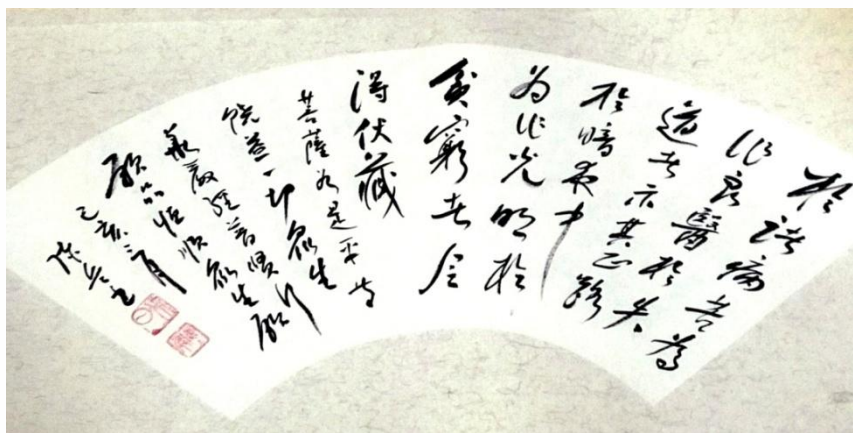 於諸病苦為
作良醫於失
道者示其正路
於暗夜中
为作光明於
貧窮者令
得伏藏
菩薩如是平等
饒益一切眾生
華嚴經普賢行
願品恒順眾生願
己亥三月